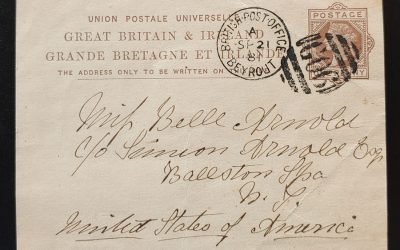 UNION POSTALE UNIVERSELLE
GREAT BRITAIN & IRELAND
GRANDE BRETAGNE ET IRLANDE
THE ADDRESS ONLY TO BE WRITTEN ON
BRITISH POST OFFICE
A
SP 21
BEYROUT
POSTAGE
G06
Miss Belle Arnold
c/o Simeon Arnold Esq
Ballston Spa
N. Y.
United States of America